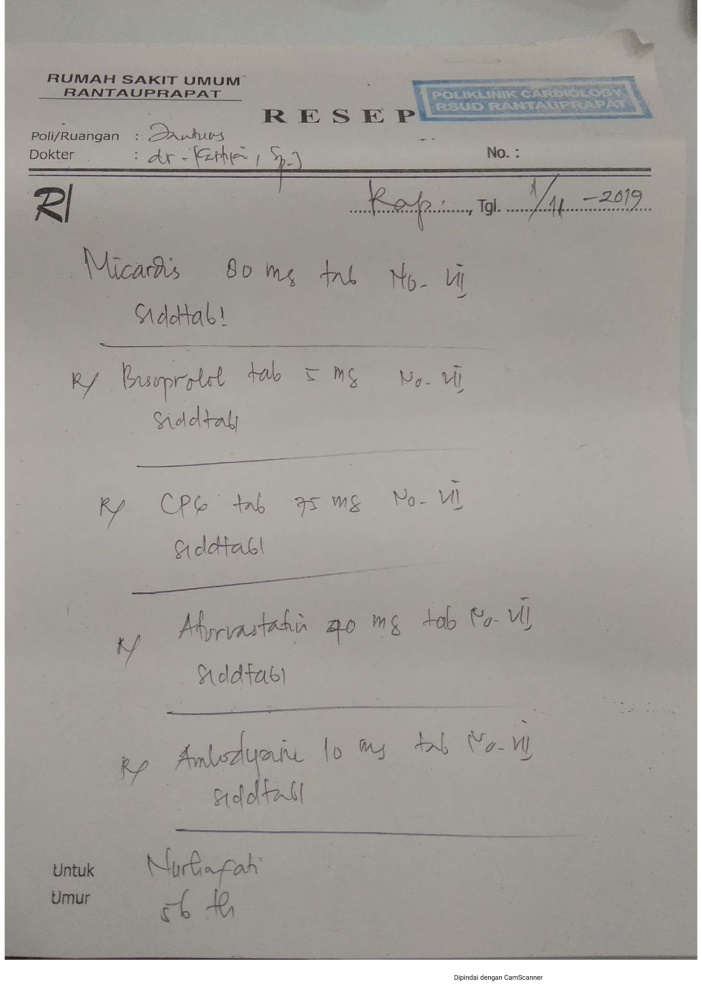 RUMAH SAKIT UMUM
RANTAUPRAPAT
POLIKLINIK CARDIOLOGY
RSUD RANTAUPRAPAT
RESEP
Poli/Ruangan :
Dokter : dr.
No. :
R/
Rap. , Tgl. 1/11 -2019
Micardis 80 mg tab No- VII
S1ddtab1
R/ Bisoprolol tab 5 mg No- VII
S1ddtab1
R/ CPG tab 75 mg No- VII
S1ddtab1
R/ Atorvastatin 40 mg tab No- VII
S1ddtab1
R/ Amlodypine 10 mg tab No- VII
S1ddtab1
Untuk Nurhayati
Umur 56 th
Dipindai dengan CamScanner